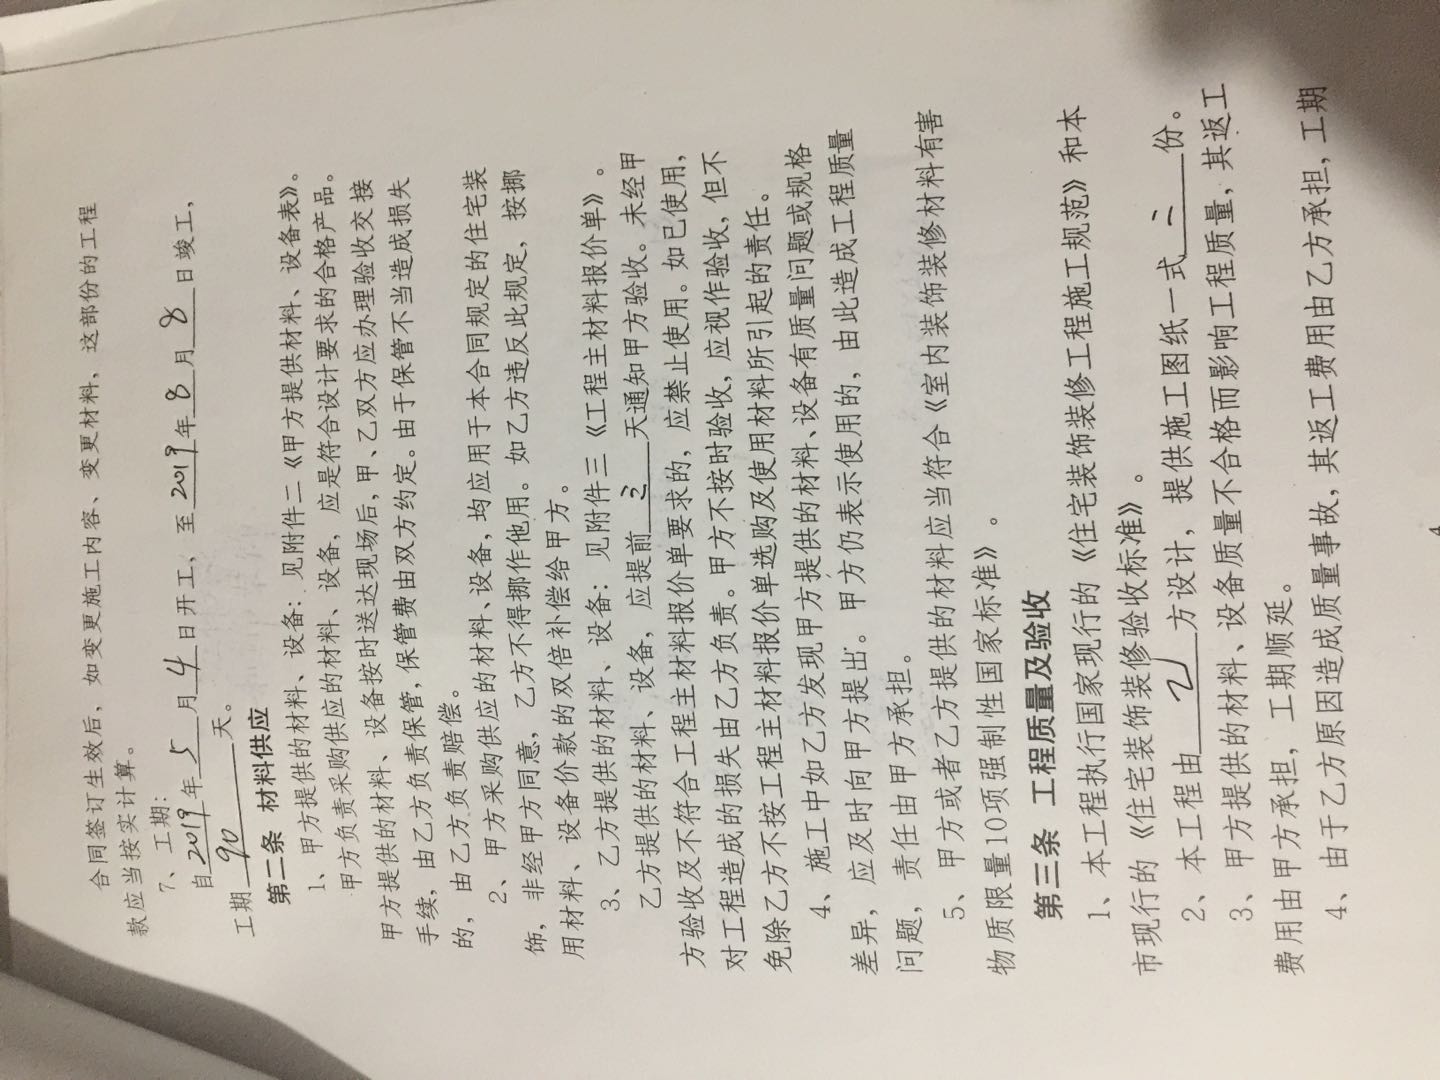 合同签订生效后，如变更施工内容、变更材料，这部份的工程
款应当按实计算。
7、工期：
自2019年5月4日开工，至2019年8月8日竣工，
工期90天。
第二条 材料供应
1、甲方提供的材料、设备：见附件二《甲方提供材料、设备表》。
甲方负责采购供应的材料、设备，应是符合设计要求的合格产品。
甲方提供的材料、设备按时送达现场后，甲、乙双方应办理验收交接
手续，由乙方负责保管，保管费由双方约定。由于保管不当造成损失
的，由乙方负责赔偿。
2、甲方采购供应的材料、设备，均应用于本合同规定的住宅装
饰，非经甲方同意，乙方不得挪作他用。如乙方违反此规定，按挪
用材料、设备价款的双倍补偿给甲方。
3、乙方提供的材料、设备：见附件三《工程主材料报价单》。
乙方提供的材料、设备，应提前 天通知甲方验收。未经甲
方验收及不符合工程主材料报价单要求的，应禁止使用。如已使用，
对工程造成的损失由乙方负责。甲方不按时验收，应视作验收，但不
免除乙方不按工程主材料报价单选购及使用材料所引起的责任。
4、施工中如乙方发现甲方提供的材料、设备有质量问题或规格
差异，应及时向甲方提出。甲方仍表示使用的，由此造成工程质量
问题，责任由甲方承担。
5、甲方或者乙方提供的材料应当符合《室内装饰装修材料有害
物质限量10项强制性国家标准》。
第三条 工程质量及验收
1、本工程执行国家现行的《住宅装饰装修工程施工规范》和本
市现行的《住宅装饰装修验收标准》。
2、本工程由乙方设计，提供施工图纸一式二份。
3、甲方提供的材料、设备质量不合格而影响工程质量，其返工
费用由甲方承担，工期顺延。
4、由于乙方原因造成质量事故，其返工费用由乙方承担，工期
4